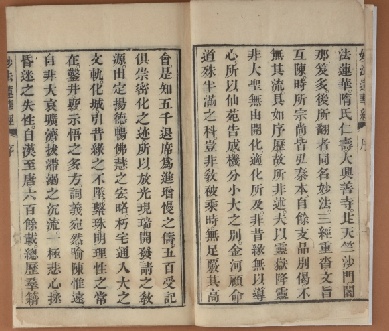 妙法蓮華經 序
法蓮華隋氏仁壽大興善寺北天竺沙門闍
那笈多後所翻者同名妙法三經重沓文旨
互陳時所宗尚皆弘秦本自餘支品別偈不
無其流具如序歷故所非述夫以靈嶽降靈
非大聖無由開化適化所及非昔緣無以導
心所以仙苑告成機分小大之別金河顧命
道殊半滿之科豈非教被乘時無足覈其高
會是知五千退席為進增慢之儔五百受記
俱崇密化之迹所以放光現瑞開發請之教
源出定揚德暢佛慧之宏略朽宅通入大之
文軌化城引昔緣之不墜繫珠明理性之常
在鑿井顯示悟之多方詞義宛然喻陳惟遠
自非大哀曠濟拔滯溺之沉流一極悲心拯
昏迷之失性自漢至唐六百餘載總歷羣籍
妙法蓮華經 序